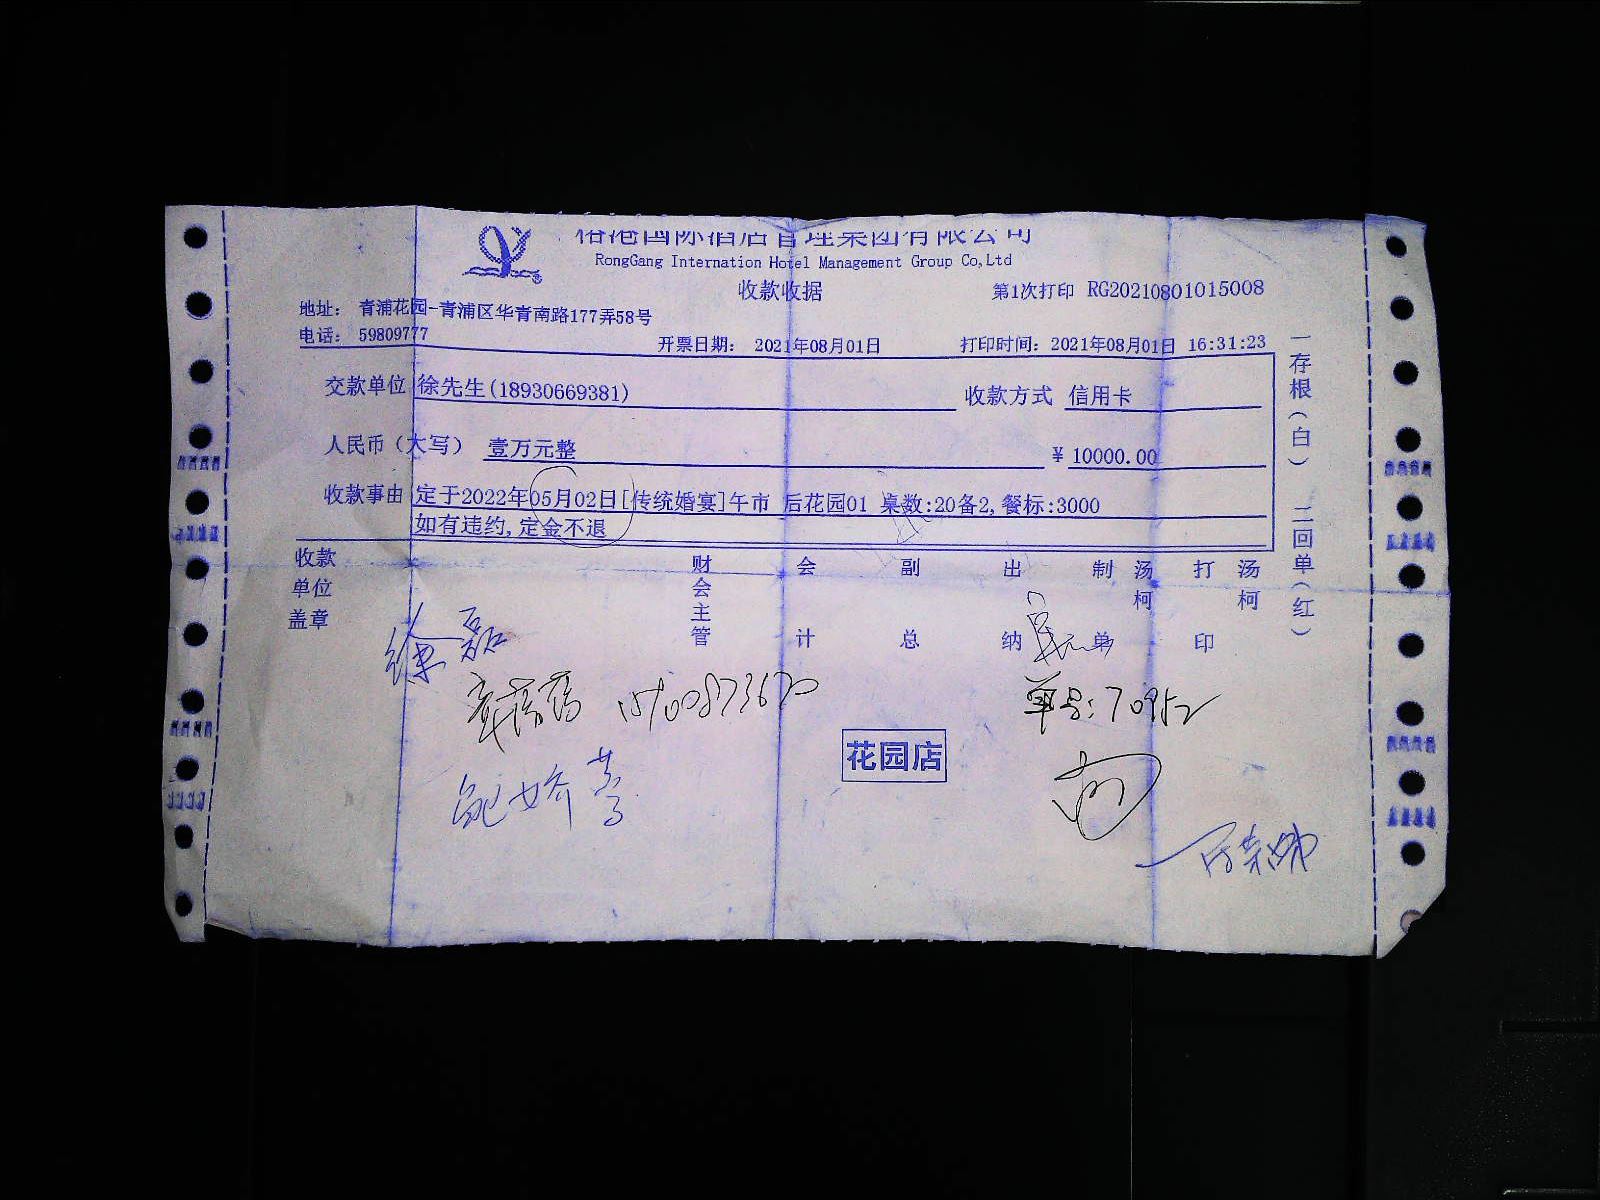 港国际酒店管理集团有限公司
RongGang Internation Hotel Management Group Co,Ltd
收款收据
第1次打印 RG20210801015008
地址： 青浦花园-青浦区华青南路177弄58号
电话： 59809777
开票日期： 2021年08月01日
打印时间：2021年08月01日 16:31:23
交款单位 徐先生(18930669381)
收款方式 信用卡
人民币（大写） 壹万元整
￥ 10000.00
收款事由 定于2022年05月02日[传统婚宴]午市 后花园01 桌数:20备2,餐标:3000
如有违约,定金不退
一存根（白） 二回单（红）
收款单位盖章
财会主管
会计
副总
出纳
制单 汤柯
打印 汤柯
徐磊
单号:70952
花园店